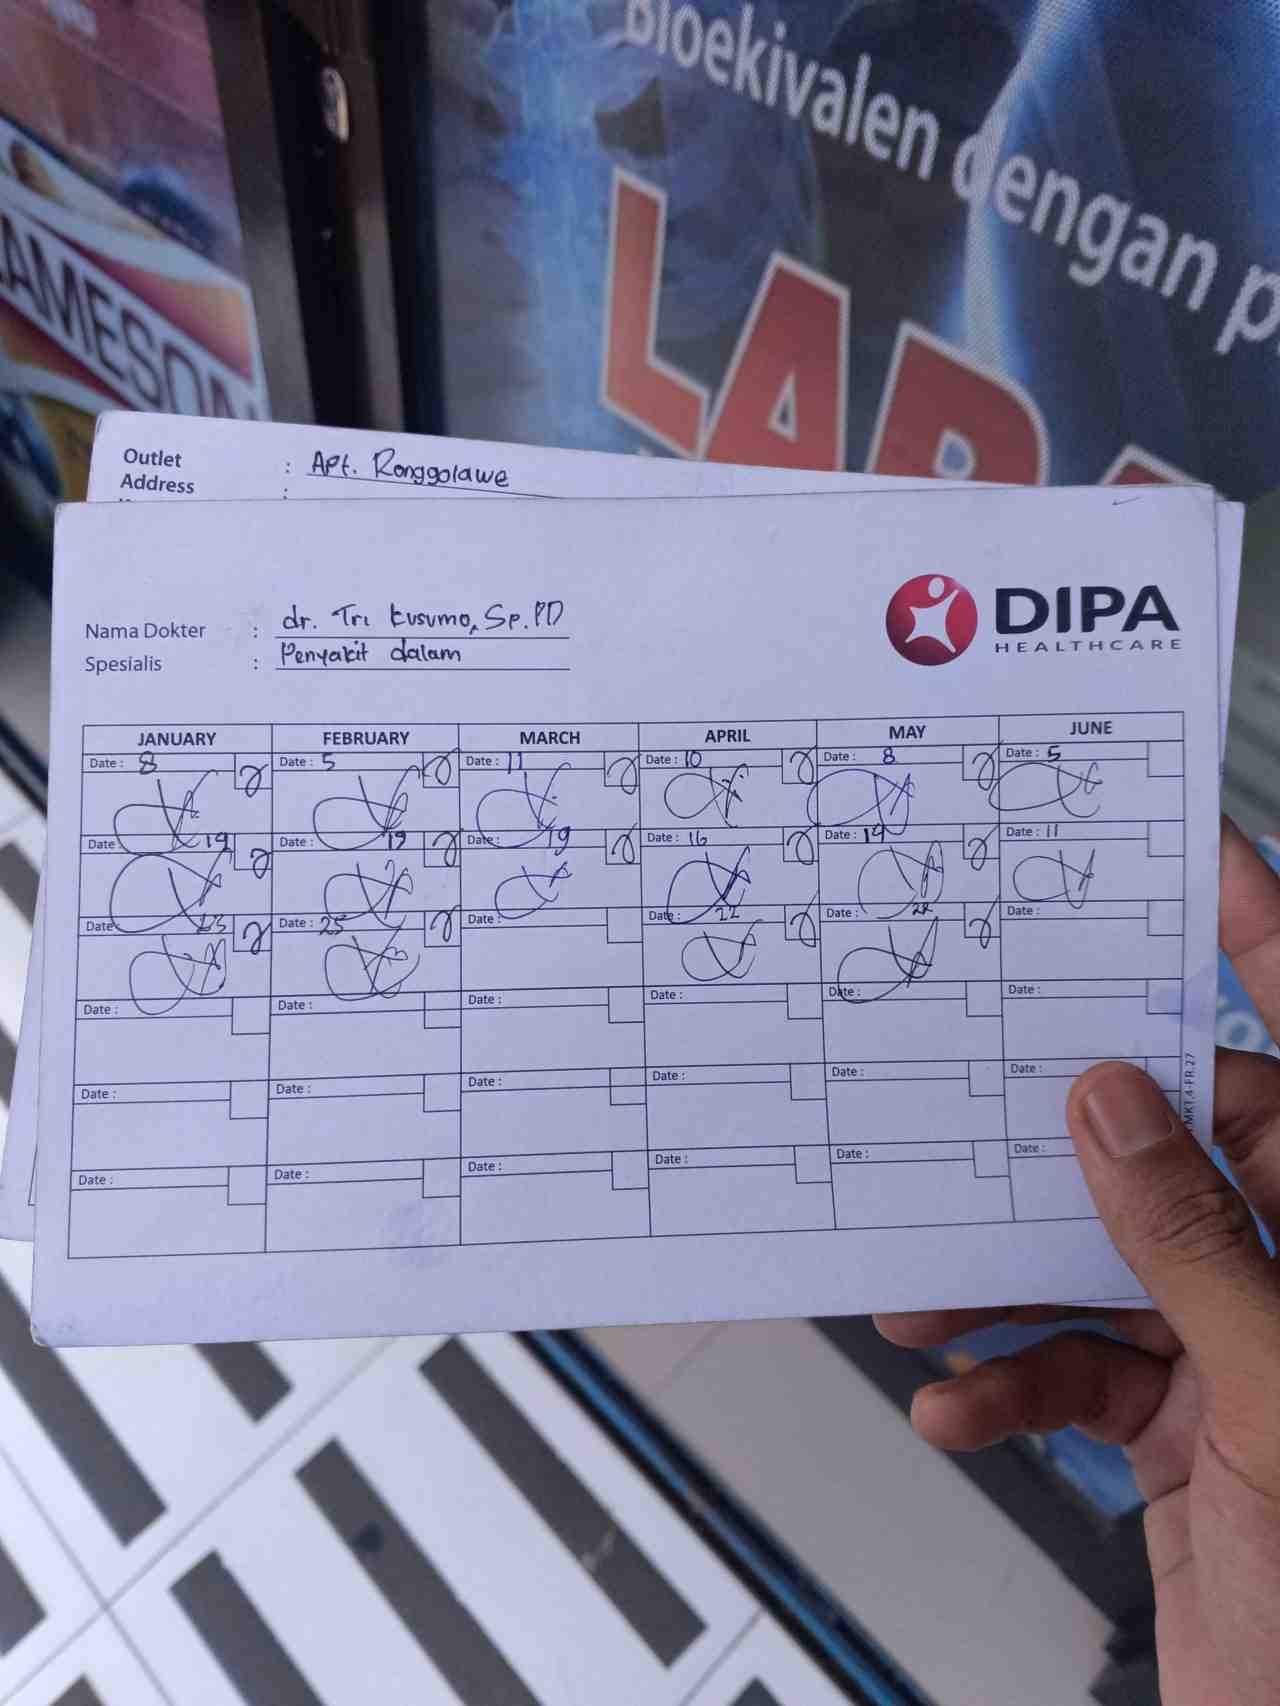 Bioekivalen dengan p
LAD
AMESON
Outlet : Apt. Ronggolawe
Address :
DIPA
HEALTHCARE
Nama Dokter : dr. Tri Kusumo, Sp.PD
Spesialis : Penyakit dalam
JANUARY FEBRUARY MARCH APRIL MAY JUNE
Date : 8 Date : 5 Date : 11 Date : 10 Date : 8 Date : 5
Date : 19 Date : 19 Date : 19 Date : 16 Date : 14 Date : 11
Date : 23 Date : 25 Date : Date : 22 Date : 22 Date :
Date : Date : Date : Date : Date : Date :
Date : Date : Date : Date : Date : Date :
Date : Date : Date : Date : Date : Date :
MKT.4-FR.27